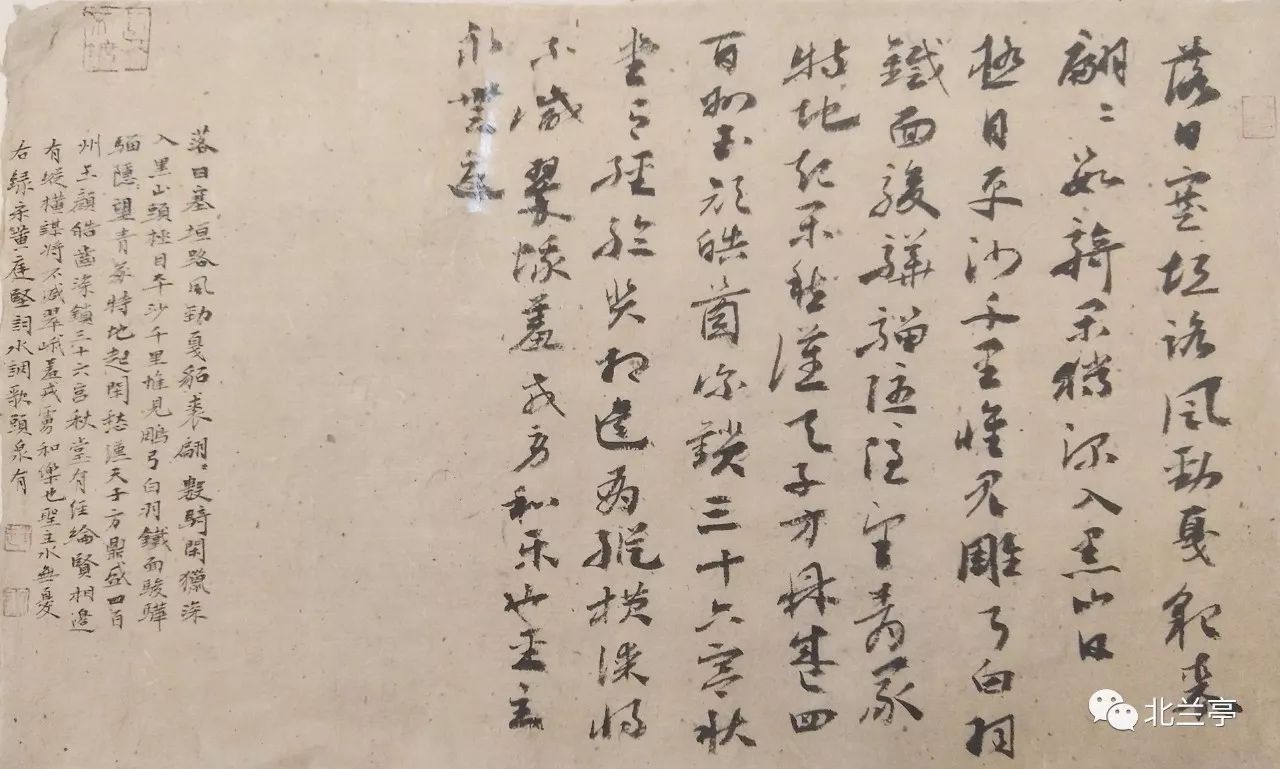 落日塞垣路風勁戛貂裘
翩〻數騎閑獵深入黑山頭
極目平沙千里惟見雕弓白羽
鐵面駿驊騮隱隱望青冢
特地起閑愁漢天子方鼎盛四
百州玉顏皓齒深鎖三十六宮秋
堂有經綸賢相邊有縱橫謀將
不減翠蛾羞戎虜和樂也聖主
永無憂
落日塞垣路風勁戛貂裘翩〻數騎閑獵深
入黑山頭極目平沙千里惟見鵰弓白羽鐵面駿驊
騮隱望青冢特地起閑愁漢天子方鼎盛四百
州玉顏皓齒深鎖三十六宮秋堂有經綸賢相邊
有縱橫謀將不減翠峨羞戎虜和樂也聖主永無憂
右録宋黃庭堅詞水調歌頭泉有
北兰亭